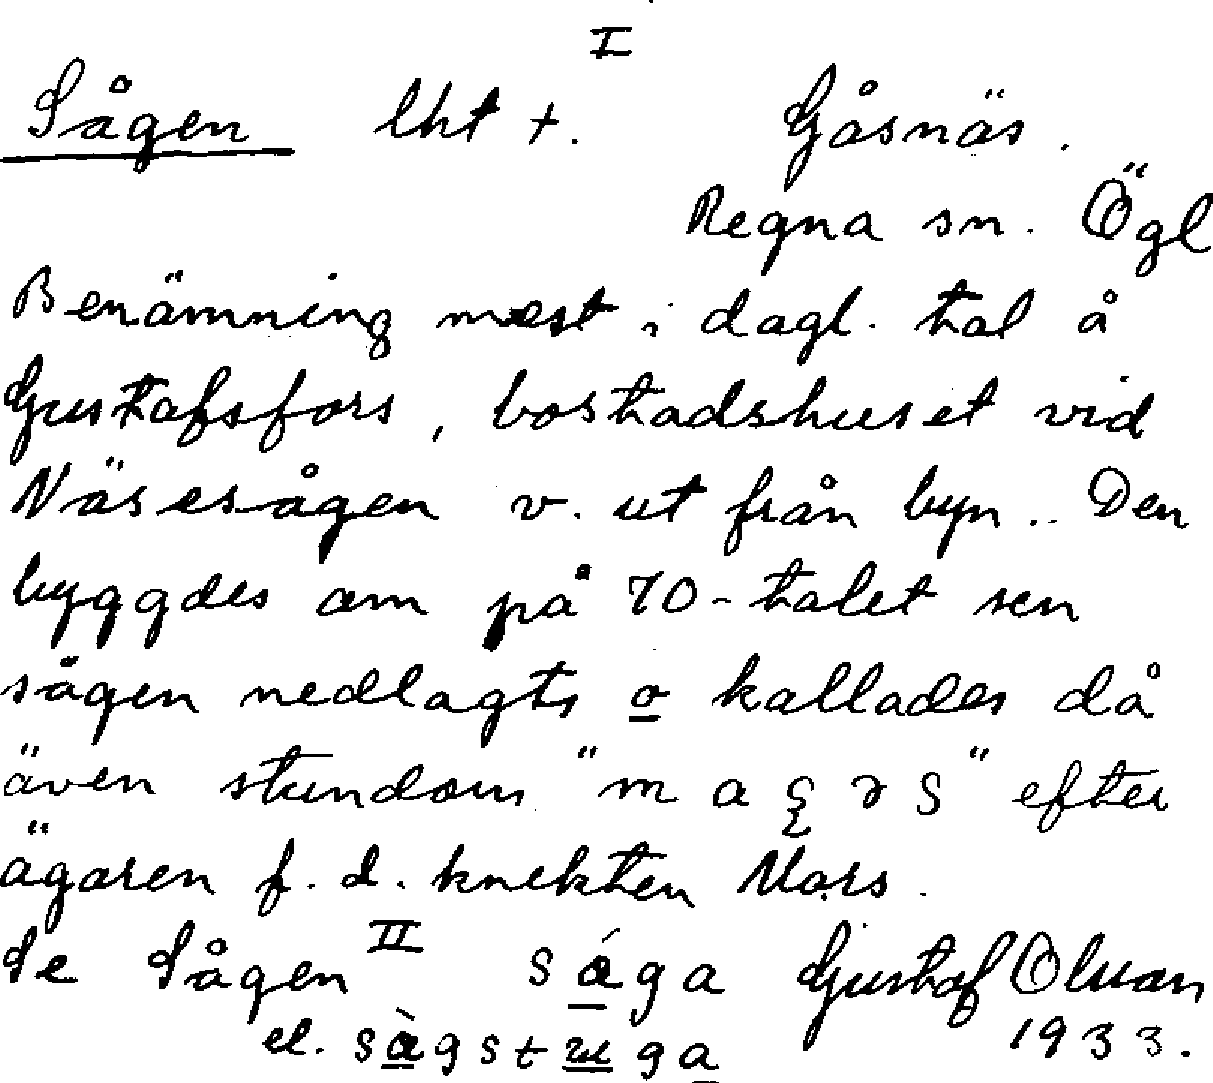 I
Sågen lht +. Gåsnäs.
Regna sn. Ögl
Benämning mest i dagl. tal å
Gustafsfors, bostadshuset vid
Näsesågen v. ut från byn.. Den
byggdes om på 70-talet sen
sågen nedlagts o kallades då
även stundom " " efter
ägaren f. d. knekten Mars.
Se Sågen II Gustaf Olsson
el. 1933.